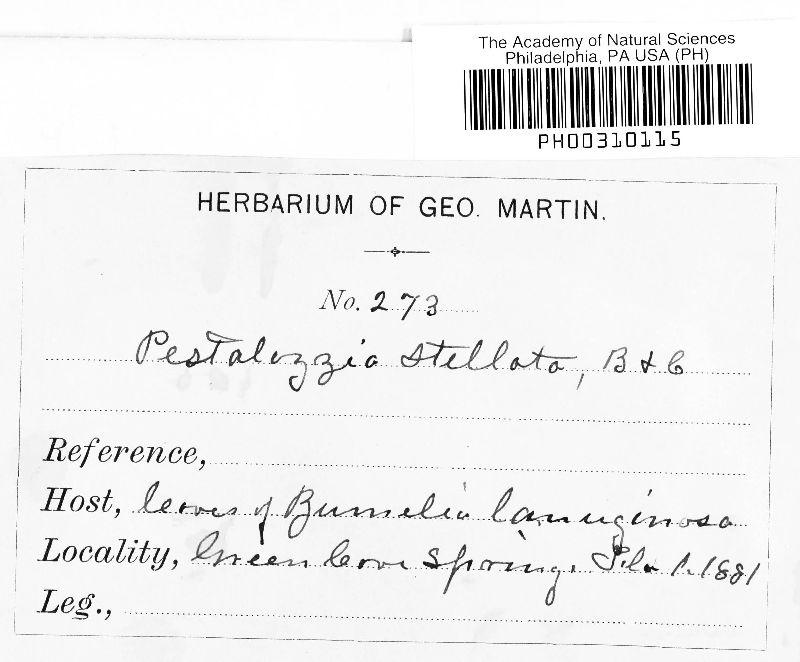 The Academy of Natural Sciences
Philadelphia, PA USA (PH)
PH00310115
HERBARIUM OF GEO. MARTIN.
No. 273
Pestalozzia stellata, B & C
Reference,
Host, leaves of Bumelia lanuginosa
Locality, Green Cove Spring. Fla 1881
Leg.,